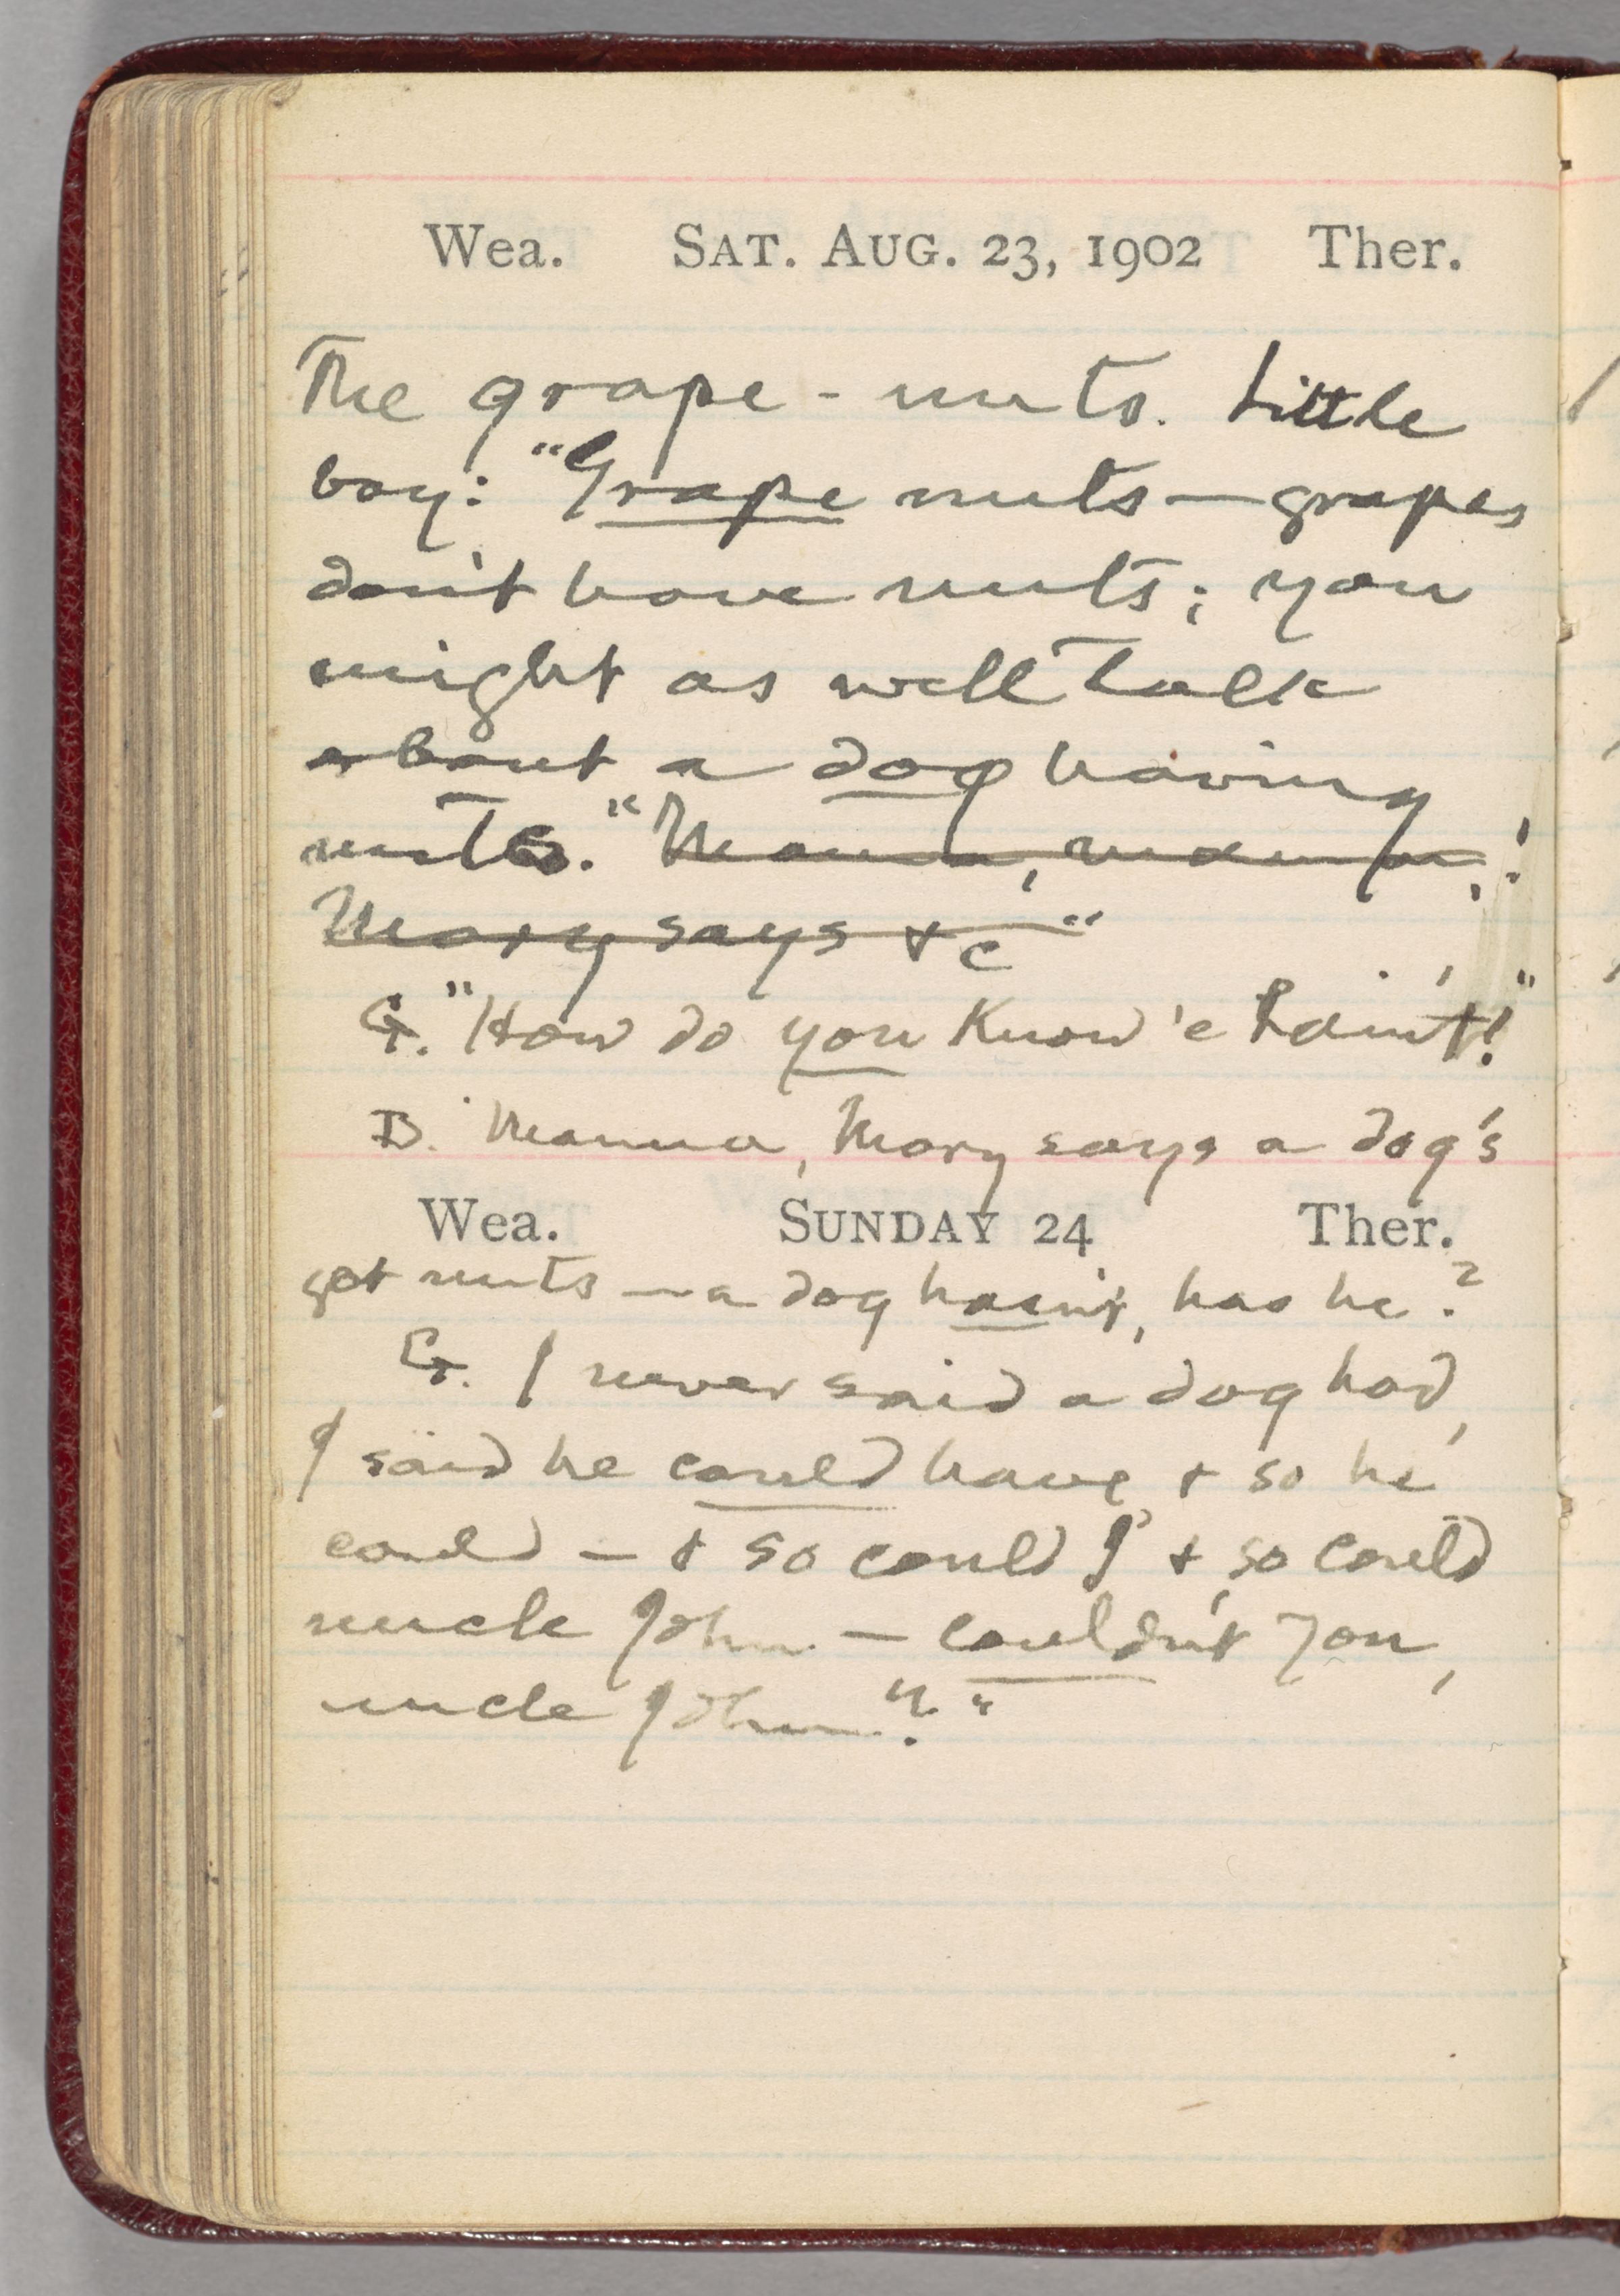 Wea. SAT. AUG. 23, 1902 Ther.
The grape-nuts. Little
boy: "Grape nuts—grapes
don't have nuts; you
might as well talk
about a dog having
nuts." "Mama, mamma,!
Mary says &c"
G. "How do you know 'e hain't!"
B. Mamma, Mary says a dog's
Wea. SUNDAY 24 Ther.
got nuts—a dog hasn't, has he?
G. I never said a dog had,
I said he could have, & so he
could—& so could I & so could
uncle John—couldn't you,
uncle John?"